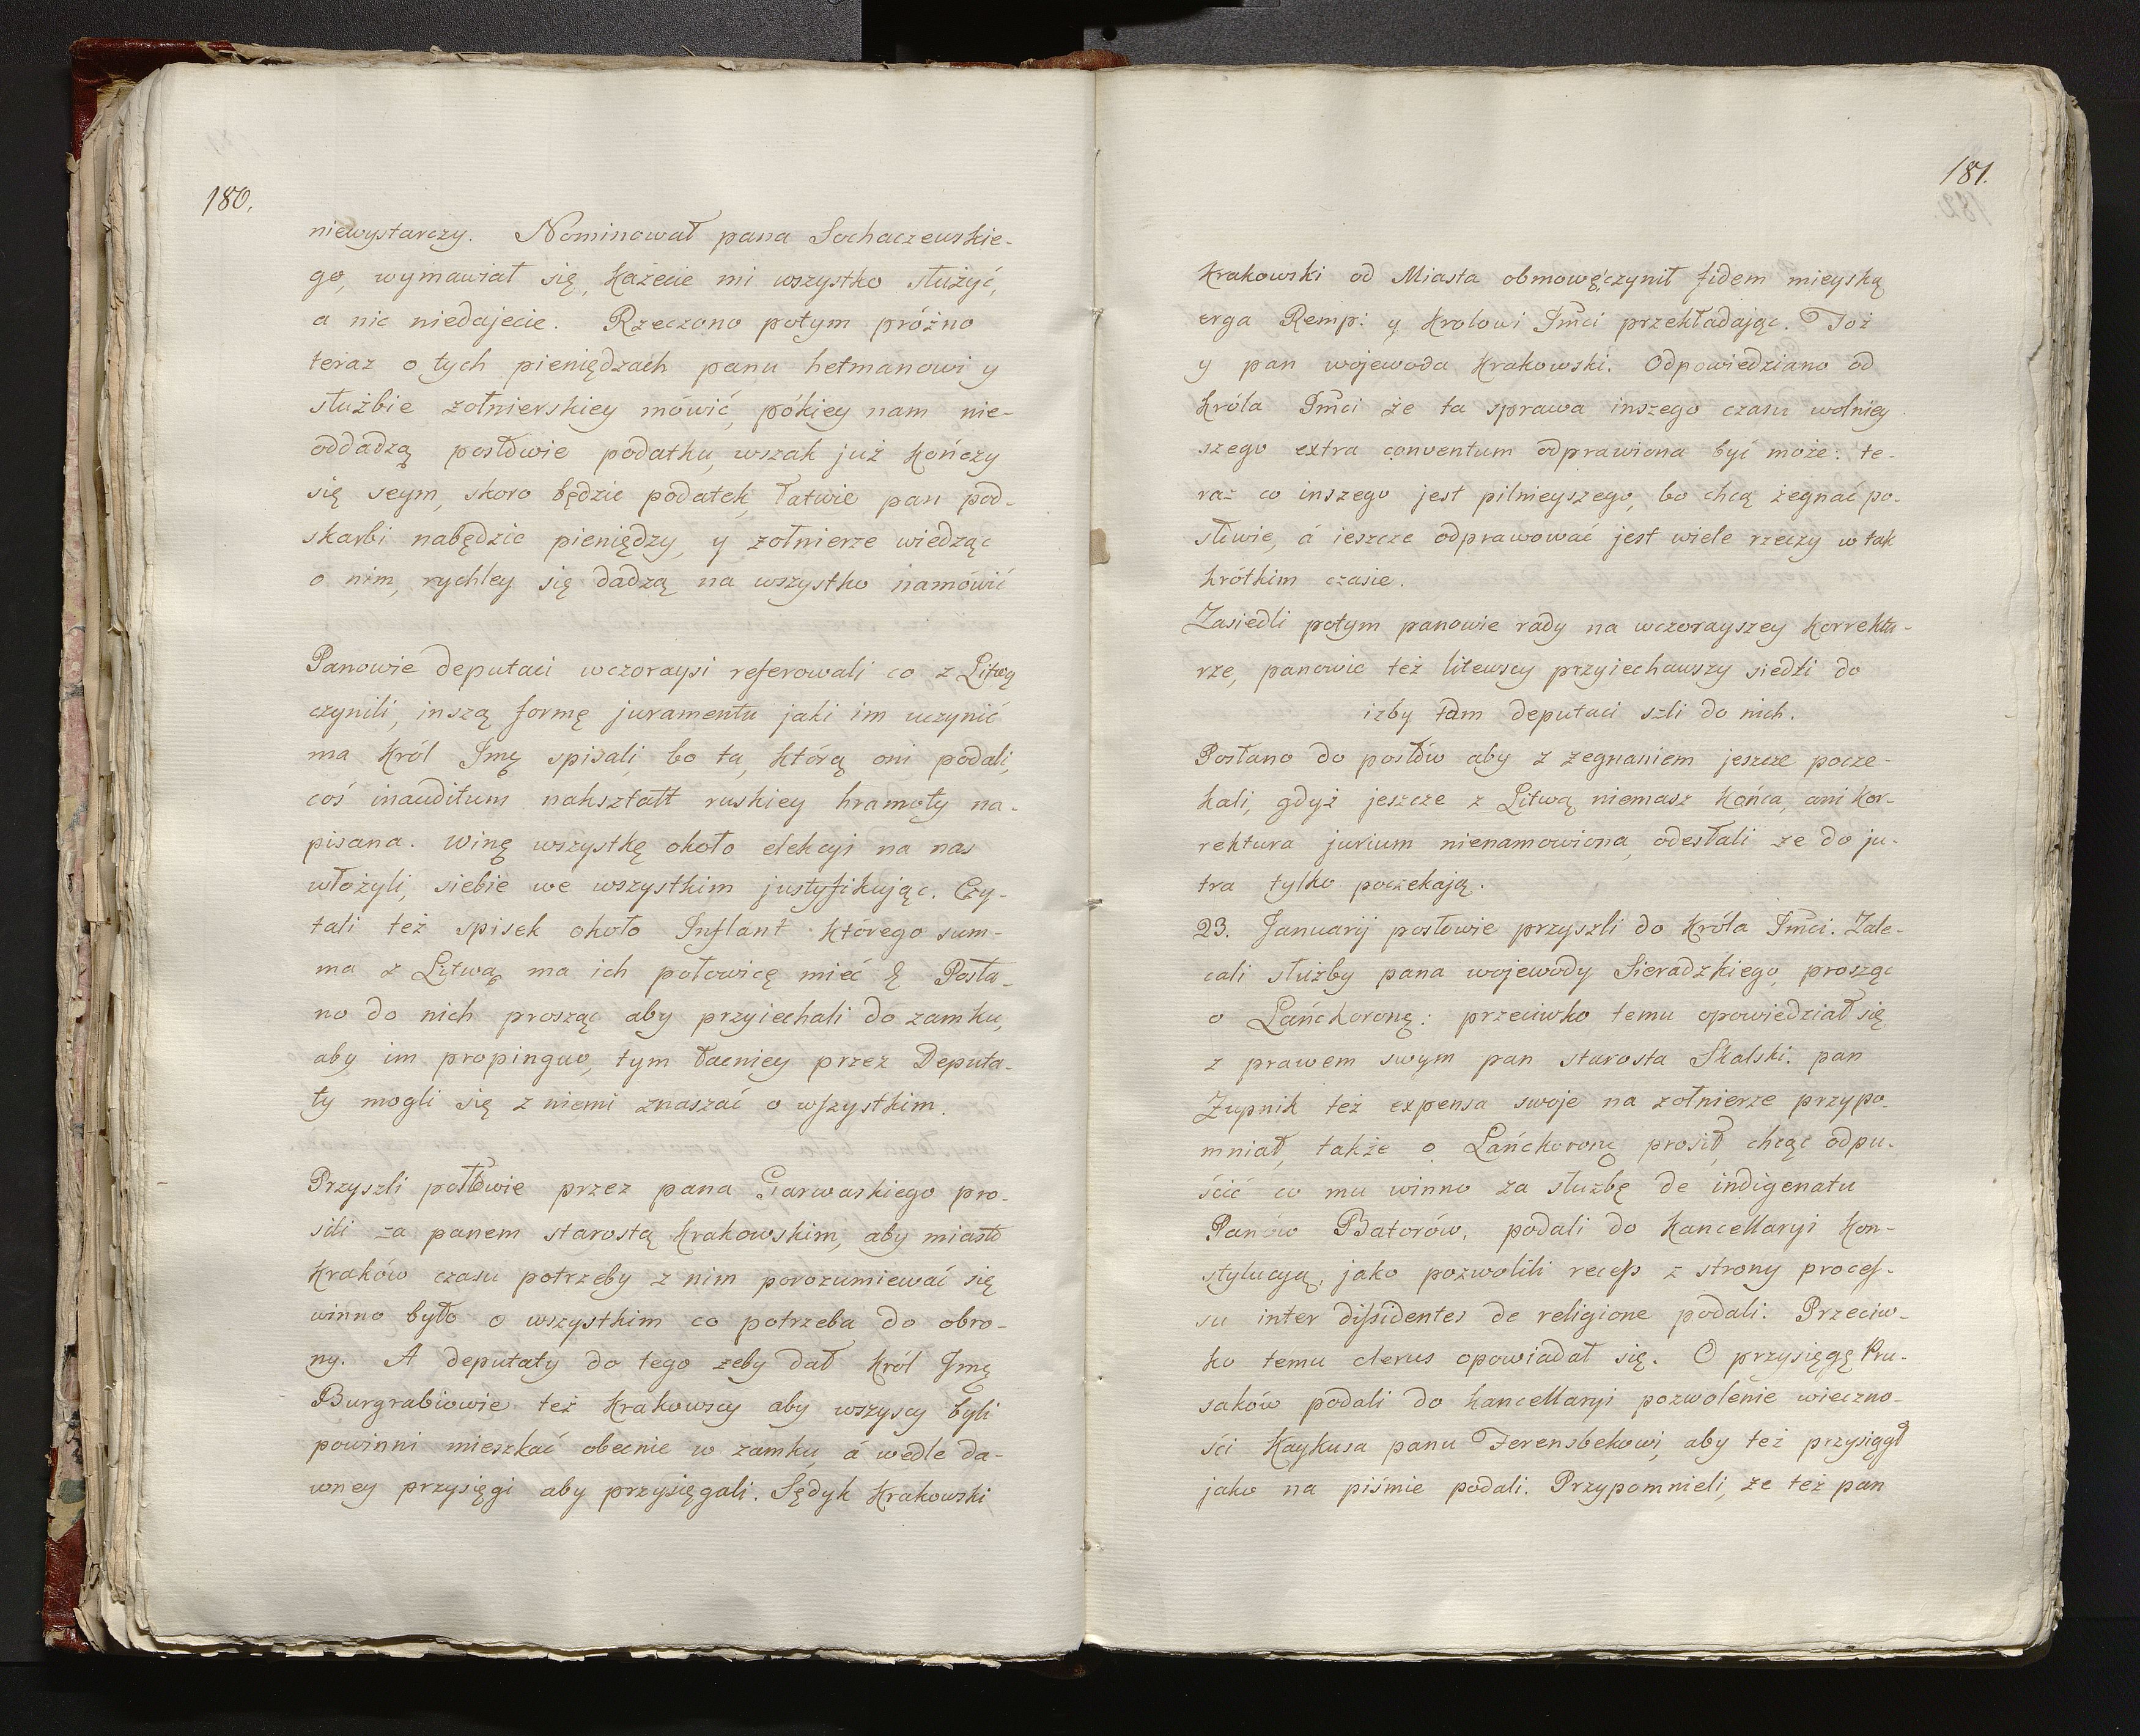 180.
niewystarczy. Nominował pana Sochaczewskie-
go, wymawiał się, każecie mi wszystko służyć,
a nic niedajecie. Rzeczono potym próżno
teraz o tych pieniędzach panu hetmanowi y
służbie żołnierskiey mówić, pókiey nam nie-
oddadzą posłowie podatku, wszak już kończy
się seym, skoro będzie podatek, łatwie pan pod-
skarbi nabędzie pieniędzy, y żołnierze wiedząc
o nim, rychley się dadzą na wszystko namówić
Panowie deputaci wczoraysi referowali co z Litwą
czynili, inszą formę juramentu jaki im uczynić
ma Król Jmę spisali, bo ta, którą oni podali,
coś inauditum nakształt ruskiey hramoty na-
pisana. Winę wszystkę około elekcyi na nas
włożyli, siebie we wszystkim justyfikując. Czy-
tali też spisek około Inflant którego sum-
ma z Litwą ma ich połowicę mieć & Posła-
no do nich prosząc aby przyiechali do zamku,
aby im propinquo, tym łacniey przez Deputa-
ty mogli się z niemi znaszać o wszystkim.
Przyszli posłowie przez pana Garwaskiego pro-
sili za panem starostą Krakowskim, aby miasto
Kraków czasu potrzeby z nim porozumiewać się
winno było o wszystkim co potrzeba do obro-
ny. A deputaty do tego żeby dał Król Jmę
Burgrabiowie też Krakowscy aby wszyscy byli
powinni mieszkać obecnie w zamku, á wedle da-
wney przysięgi aby przysięgali. Sędyk Krakowski
181.
Krakowski od Miasta obmowę czynił fidem mieyską
erga Remp: y Krolowi Jmci przekładając. Toż
y pan wojewoda Krakowski. Odpowiedziano od
Króla Jmci że ta sprawa inszego czasu wolniey
szego extra conventum odprawiona być może: te-
raz co inszego jest pilnieyszego, bo chcą żegnać po-
słowie, á ieszcze odprawować jest wiele rzeczy w tak
krótkim czasie.
Zasiedli potym panowie rady na wczorayszey korrektu-
rze, panowie też litewscy przyiechawszy siedli do
izby tam deputaci szli do nich.
Posłano do posłów aby z żegnaniem jeszcze pocze-
kali, gdyż jeszcze z Litwą niemasz końca, ani kor-
rektura jurium nienamowiona, odesłali że do ju-
tra tylko poczekają.
23. Januarij posłowie przyszli do Króla Jmci. Zale-
cali służby pana wojewody Sieradzkiego, prosząc
o Lańckoronę: przeciwko temu opowiedział się
z prawem swym pan starosta Skalski. pan
Żupnik też expensa swoje na żołnierze przypo-
mniał, także o Lańckoronę prosił, chcąc odpu-
ścić co mu winno za służbę de indigenatu
Panów Batorów, podali do Kancellaryi kon-
stytucyą, jako pozwolili recess z strony proces-
su inter dissidentes de religione podali. Przeciw-
ko temu clerus opowiadał się. O przysięgę Pru-
saków podali do kancellaryi pozwolenie wieczno-
ści Kaykusa panu Ferensbekowi, aby też przysiągł
jako na piśmie podali. Przypomnieli, że też pan